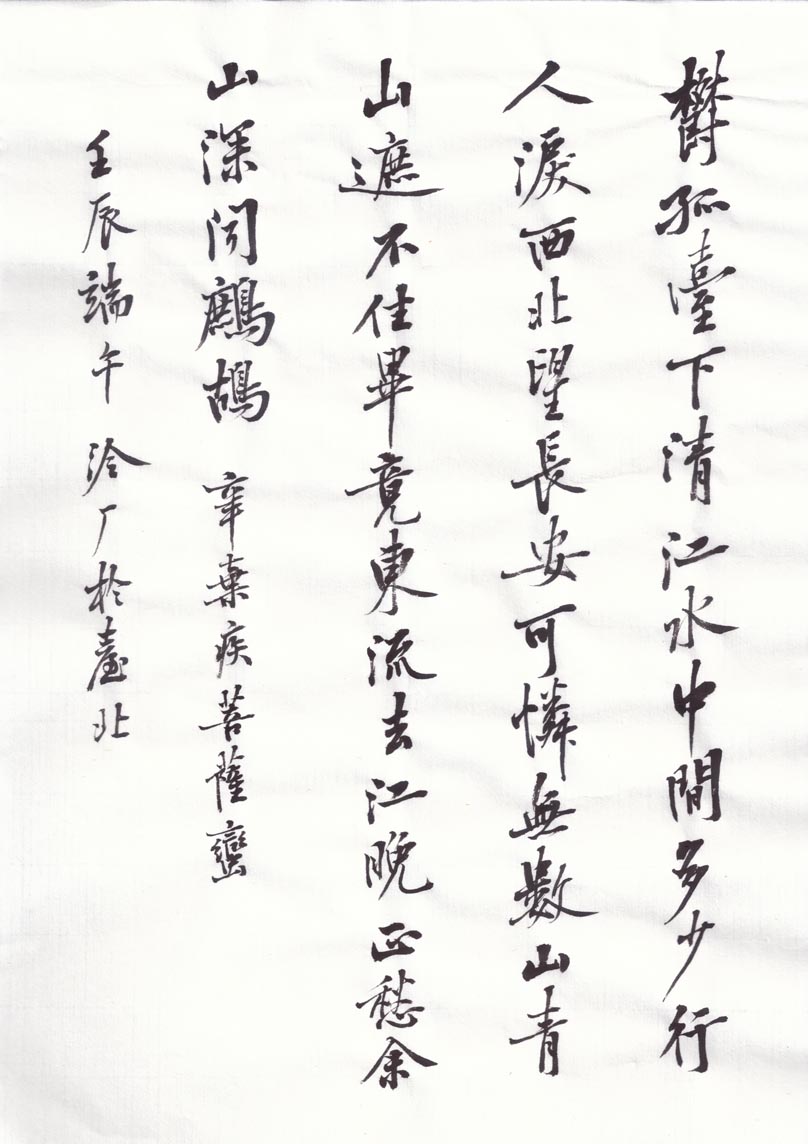 鬱孤臺下清江水中間多少行
人淚西北望長安可憐無數山青
山遮不住畢竟東流去江晚正愁余
山深聞鷓鴣 辛棄疾菩薩蠻
壬辰端午 泠厂於臺北